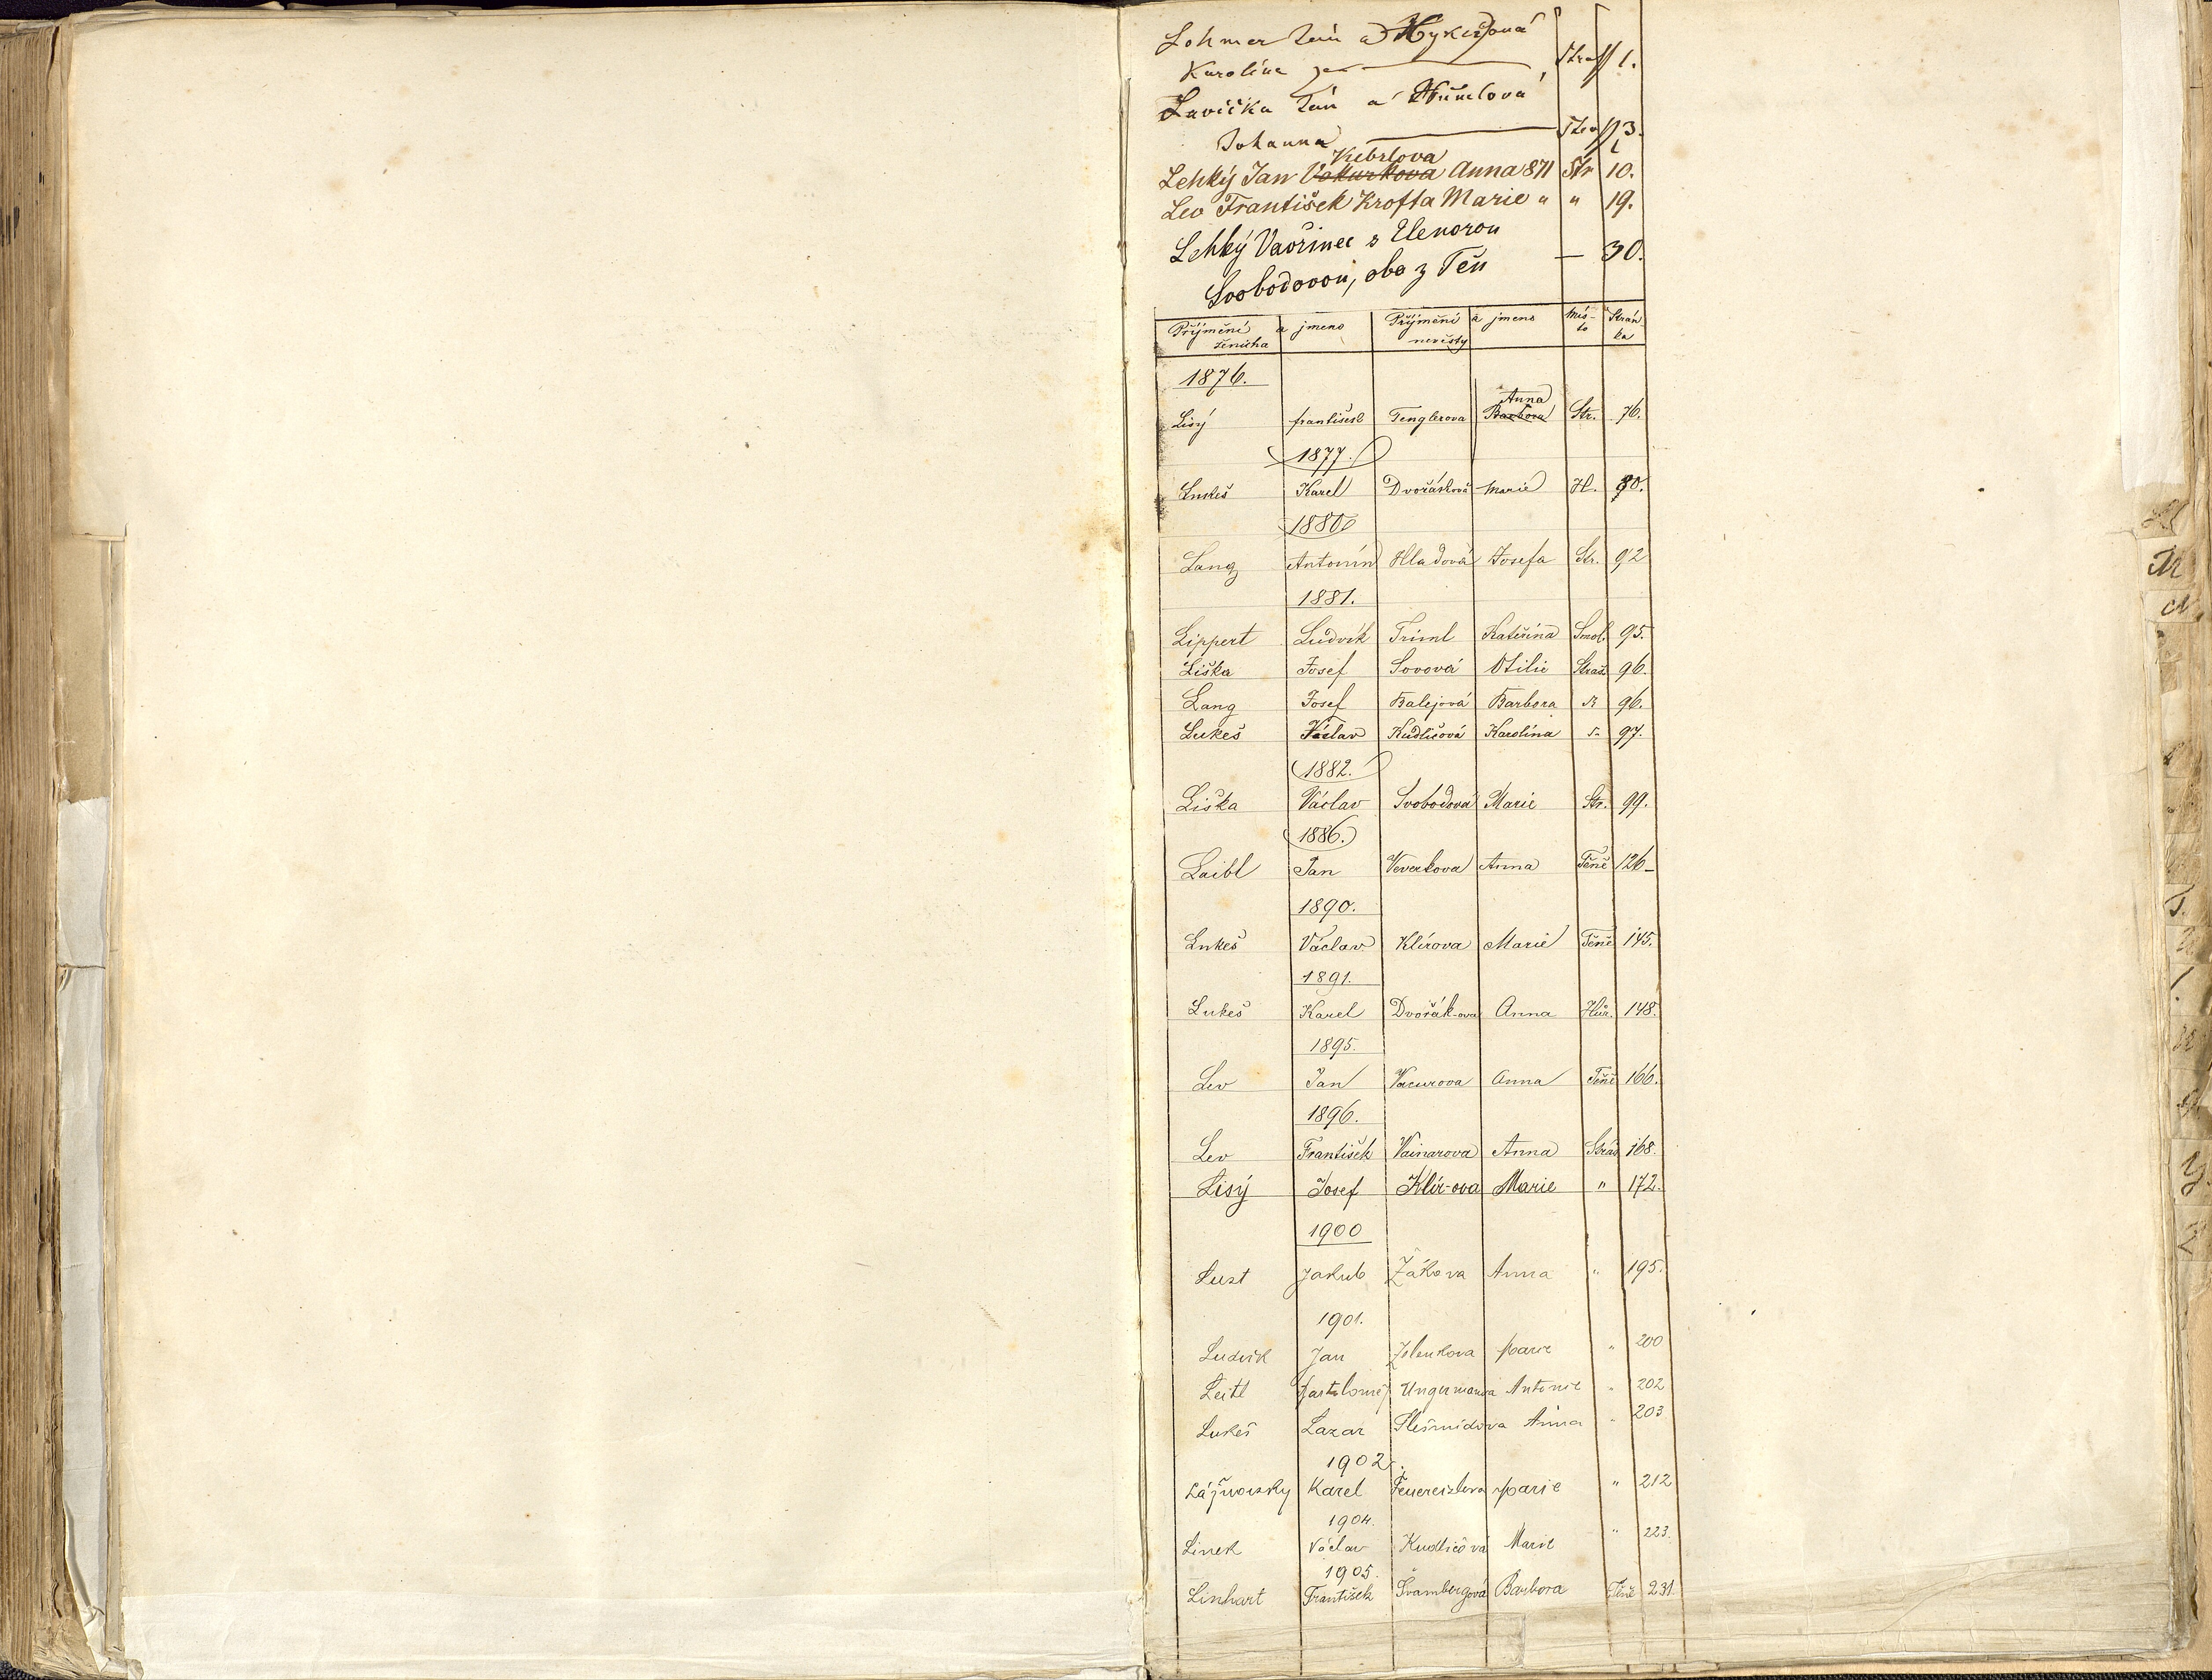 Lohmer Jan a Hykešová
Karolina Stras 1.
Lavička Jan a
Johanna 3.
Kebrlova
Lehký Jan Vokurkova Anna 871 Str 10.
Lev František Krofta Marie " " 19.
Lehký Vavřinec s Elenorou
Svobodovou, oba z Těn — 30.
Příjmění a jmeno Příjmění a jmeno Mís- Strán
ženicha nevěsty to ka
1876.
Anna
Lisý František Tenglerova Barbora Str. 76.
1877.
Lukeš Karel Dvořáková Marie H. 80.
1880
Lang Antonín Hladová Josefa Str. 92
1881.
Lippert Ludvík Triml Kateřina Smol. 95.
Liška Josef Sovová Otilie Straš. 96.
Lang Josef Balejová Barbora 96.
Lukeš Václav Kudličová Karolína 97.
1882.
Liška Václav Svobodová Marie Str. 99.
1886.
Laibl Jan Veverkova Anna Těně 126
1890.
Lukeš Václav Klírova Marie Těně 145.
1891.
Lukeš Karel Dvořák-ova Anna Hůr. 148.
1895.
Lev Jan Vacurova Anna Těně 166.
1896.
Lev František Vainarova Anna Straš 168.
Lisý Josef Klír-ova Marie " 172.
1900
Lust Jakub Žákova Anna " 195.
1901.
Ludvík Jan Zelenkova Marie " 200
Leitl Bartoloměj Ungermanova Antonie " 202
Lukeš Lazar Anna " 203
1902.
Karel Feuereislova Marie " 212
1904.
Linek Václav Kudličová Marie " 223.
1905.
Linhart František Švambergová Barbora Těně 231.